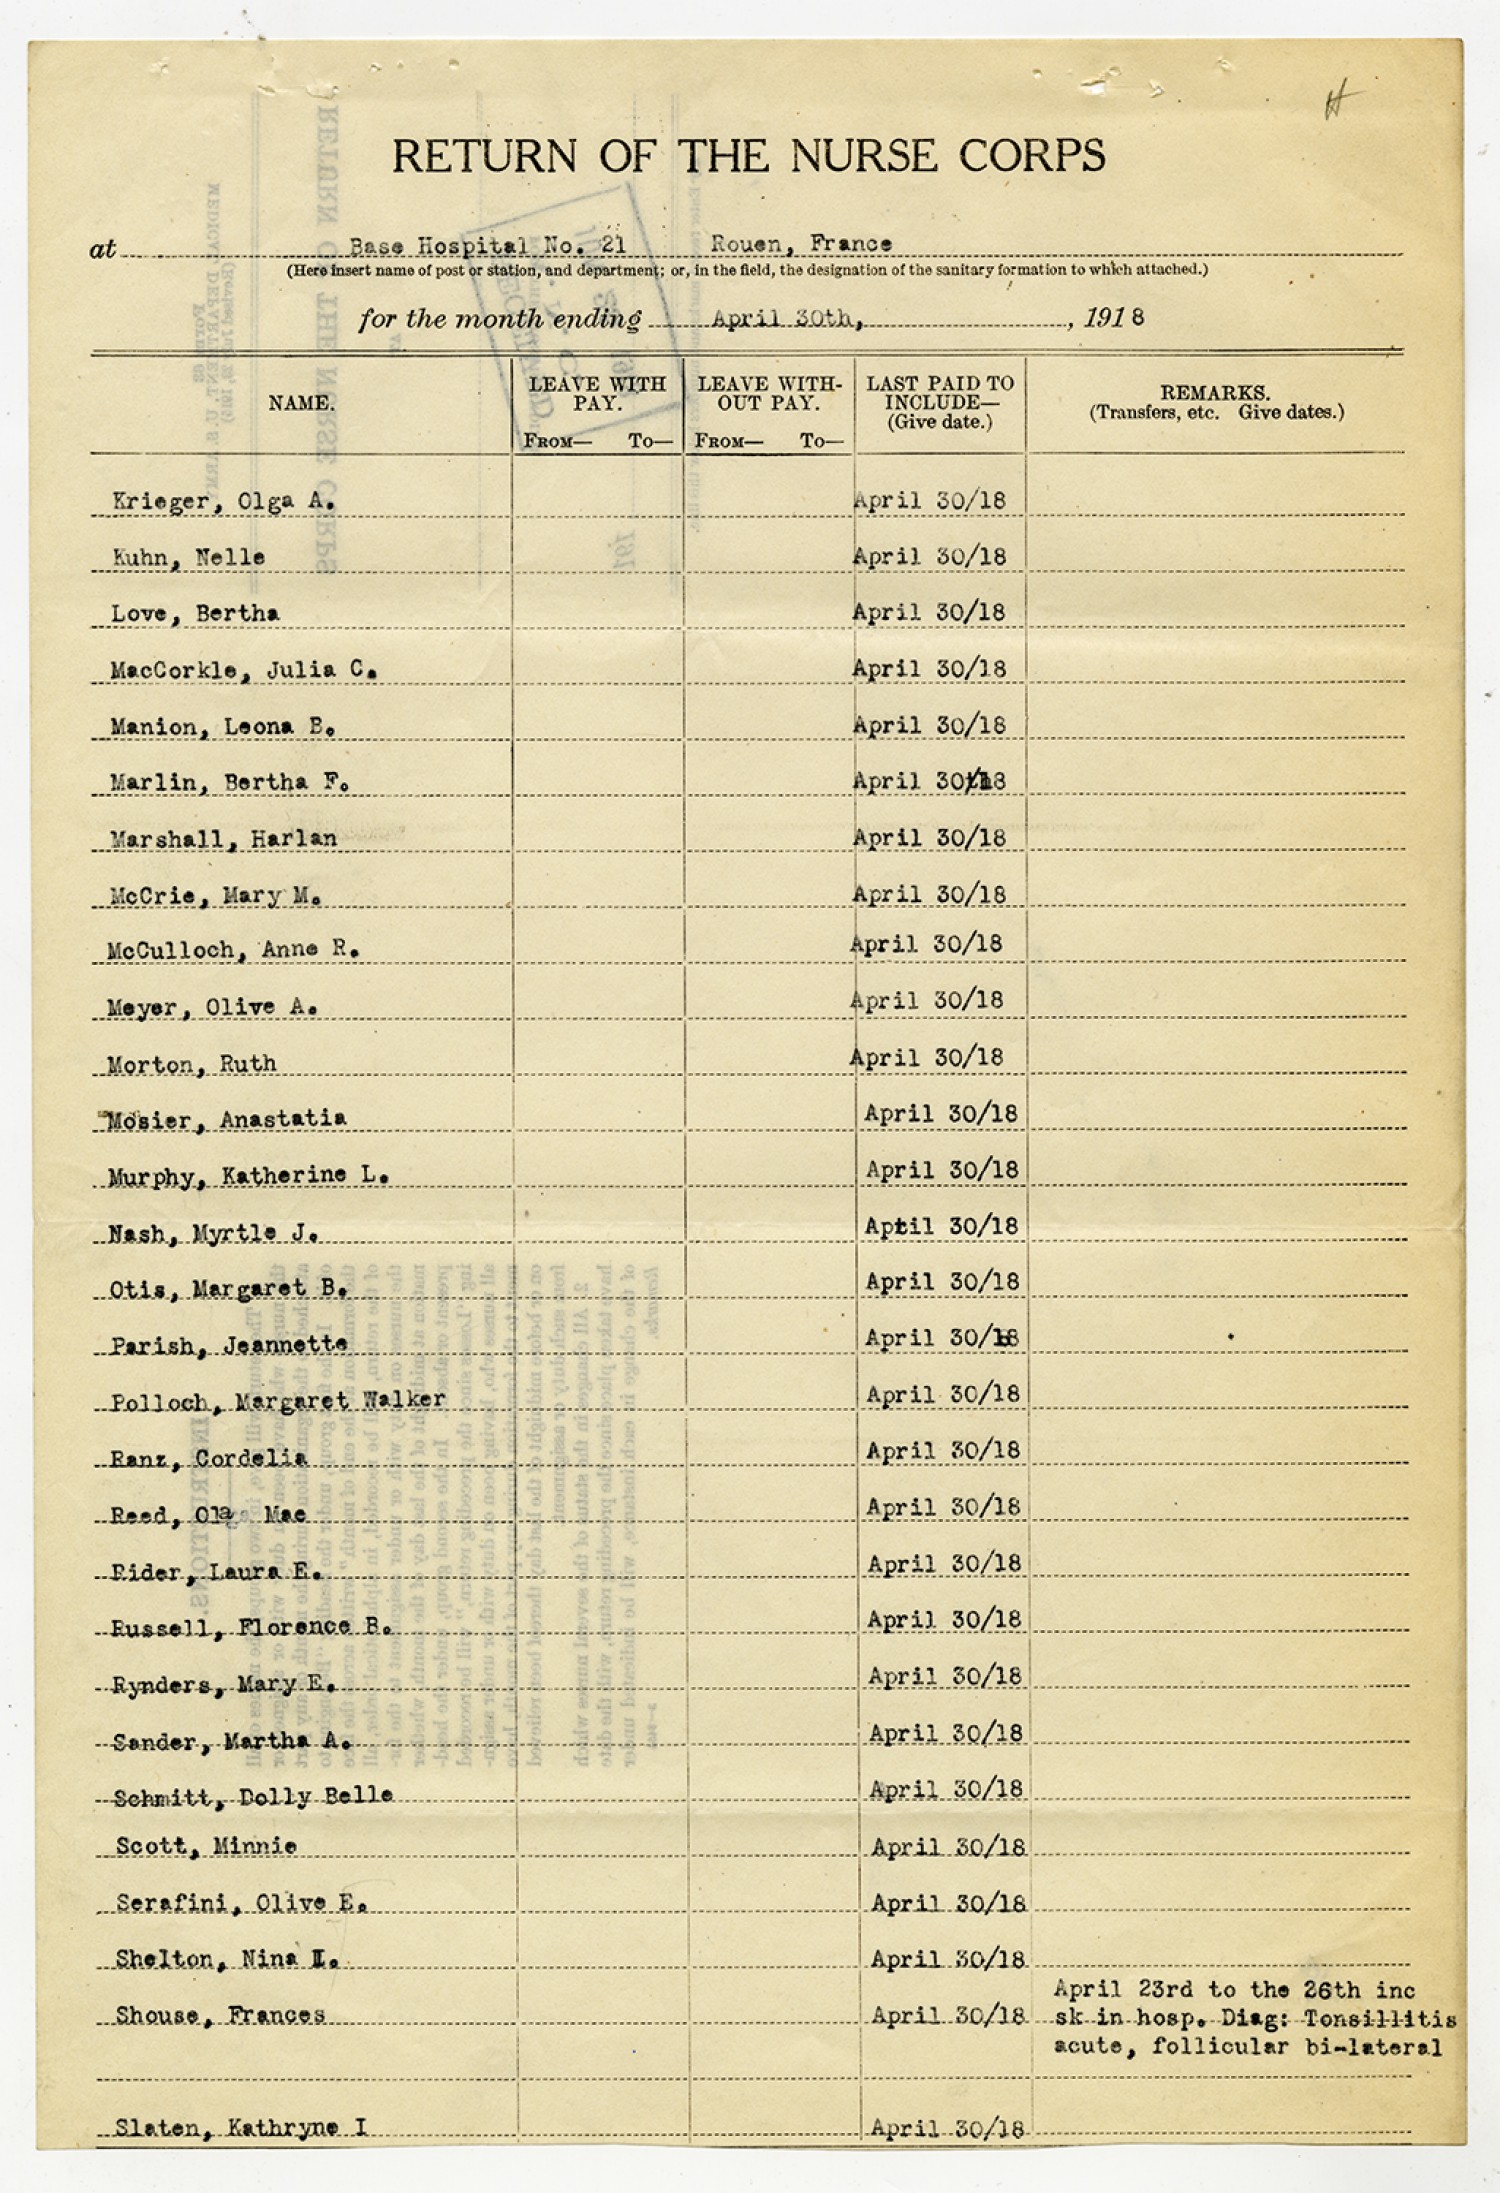 RETURN OF THE NURSE CORPS
at Base Hospital No. 21 Rouen, France
(Here insert name of post or station, and department; or, in the field, the designation of the sanitary formation to which attached.)
for the month ending April 30th, , 1918
NAME. LEAVE WITH PAY. FROM— TO— LEAVE WITH-OUT PAY. FROM— TO— LAST PAID TO INCLUDE— (Give date.) REMARKS. (Transfers, etc. Give dates.)
Krieger, Olga A. April 30/18
Kuhn, Nelle April 30/18
Love, Bertha April 30/18
MacCorkle, Julia C. April 30/18
Manion, Leona B. April 30/18
Marlin, Bertha F. April 30/18
Marshall, Harlan April 30/18
McCrie, Mary M. April 30/18
McCulloch, Anne R. April 30/18
Meyer, Olive A. April 30/18
Morton, Ruth April 30/18
Mosier, Anastatia April 30/18
Murphy, Katherine L. April 30/18
Nash, Myrtle J. Aptil 30/18
Otis, Margaret B. April 30/18
Parish, Jeannette April 30/18
Polloch, Margaret Walker April 30/18
Ranz, Cordelia April 30/18
Reed, Ola Mae April 30/18
Rider, Laura E. April 30/18
Russell, Florence B. April 30/18
Rynders, Mary E. April 30/18
Sander, Martha A. April 30/18
Schmitt, Dolly Belle April 30/18
Scott, Minnie April 30/18
Serafini, Olive E. April 30/18
Shelton, Nina April 30/18
April 23rd to the 26th inc
Shouse, Frances April 30/18 sk in hosp. Diag: Tonsillitis
acute, follicular bi-lateral
Slaten, Kathryne I April 30/18